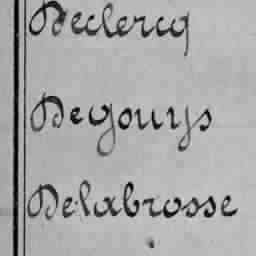 Declercq
Degouys
Delabrosse